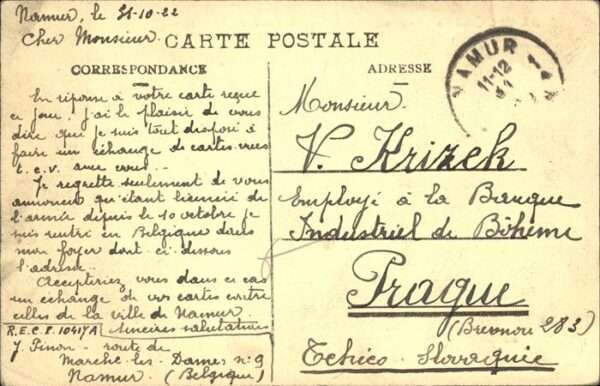 Namur, le 31-10-22
Cher Monsieur.
CARTE POSTALE
CORRESPONDANCE
En réponse à votre carte reçue
ce jour. j'ai le plaisir de vous
dire que je suis tout disposé à
faire un échange de cartes-vues
t.c.v. avec vous.
Je regrette seulement de vous
annoncer qu'étant licencié de
l'armée depuis le 10 octobre je
suis rentré en Belgique dans
mon foyer dont ci-dessous
l'adresse.
Accepteriez vous dans ce cas
un échange de vos cartes contre
celles de la ville de Namur.
Sincères salutations
R.E.C.P. 10417A
J. Pinon - route de
Marche-les-Dames n: 9
Namur (Belgique)
ADRESSE
NAMUR 1
11-12
31
Monsieur.
V. Krizek
Employé à la Banque
Industriel de Bohême
Prague
(Brevnou 283)
Tchéco-Slovaquie